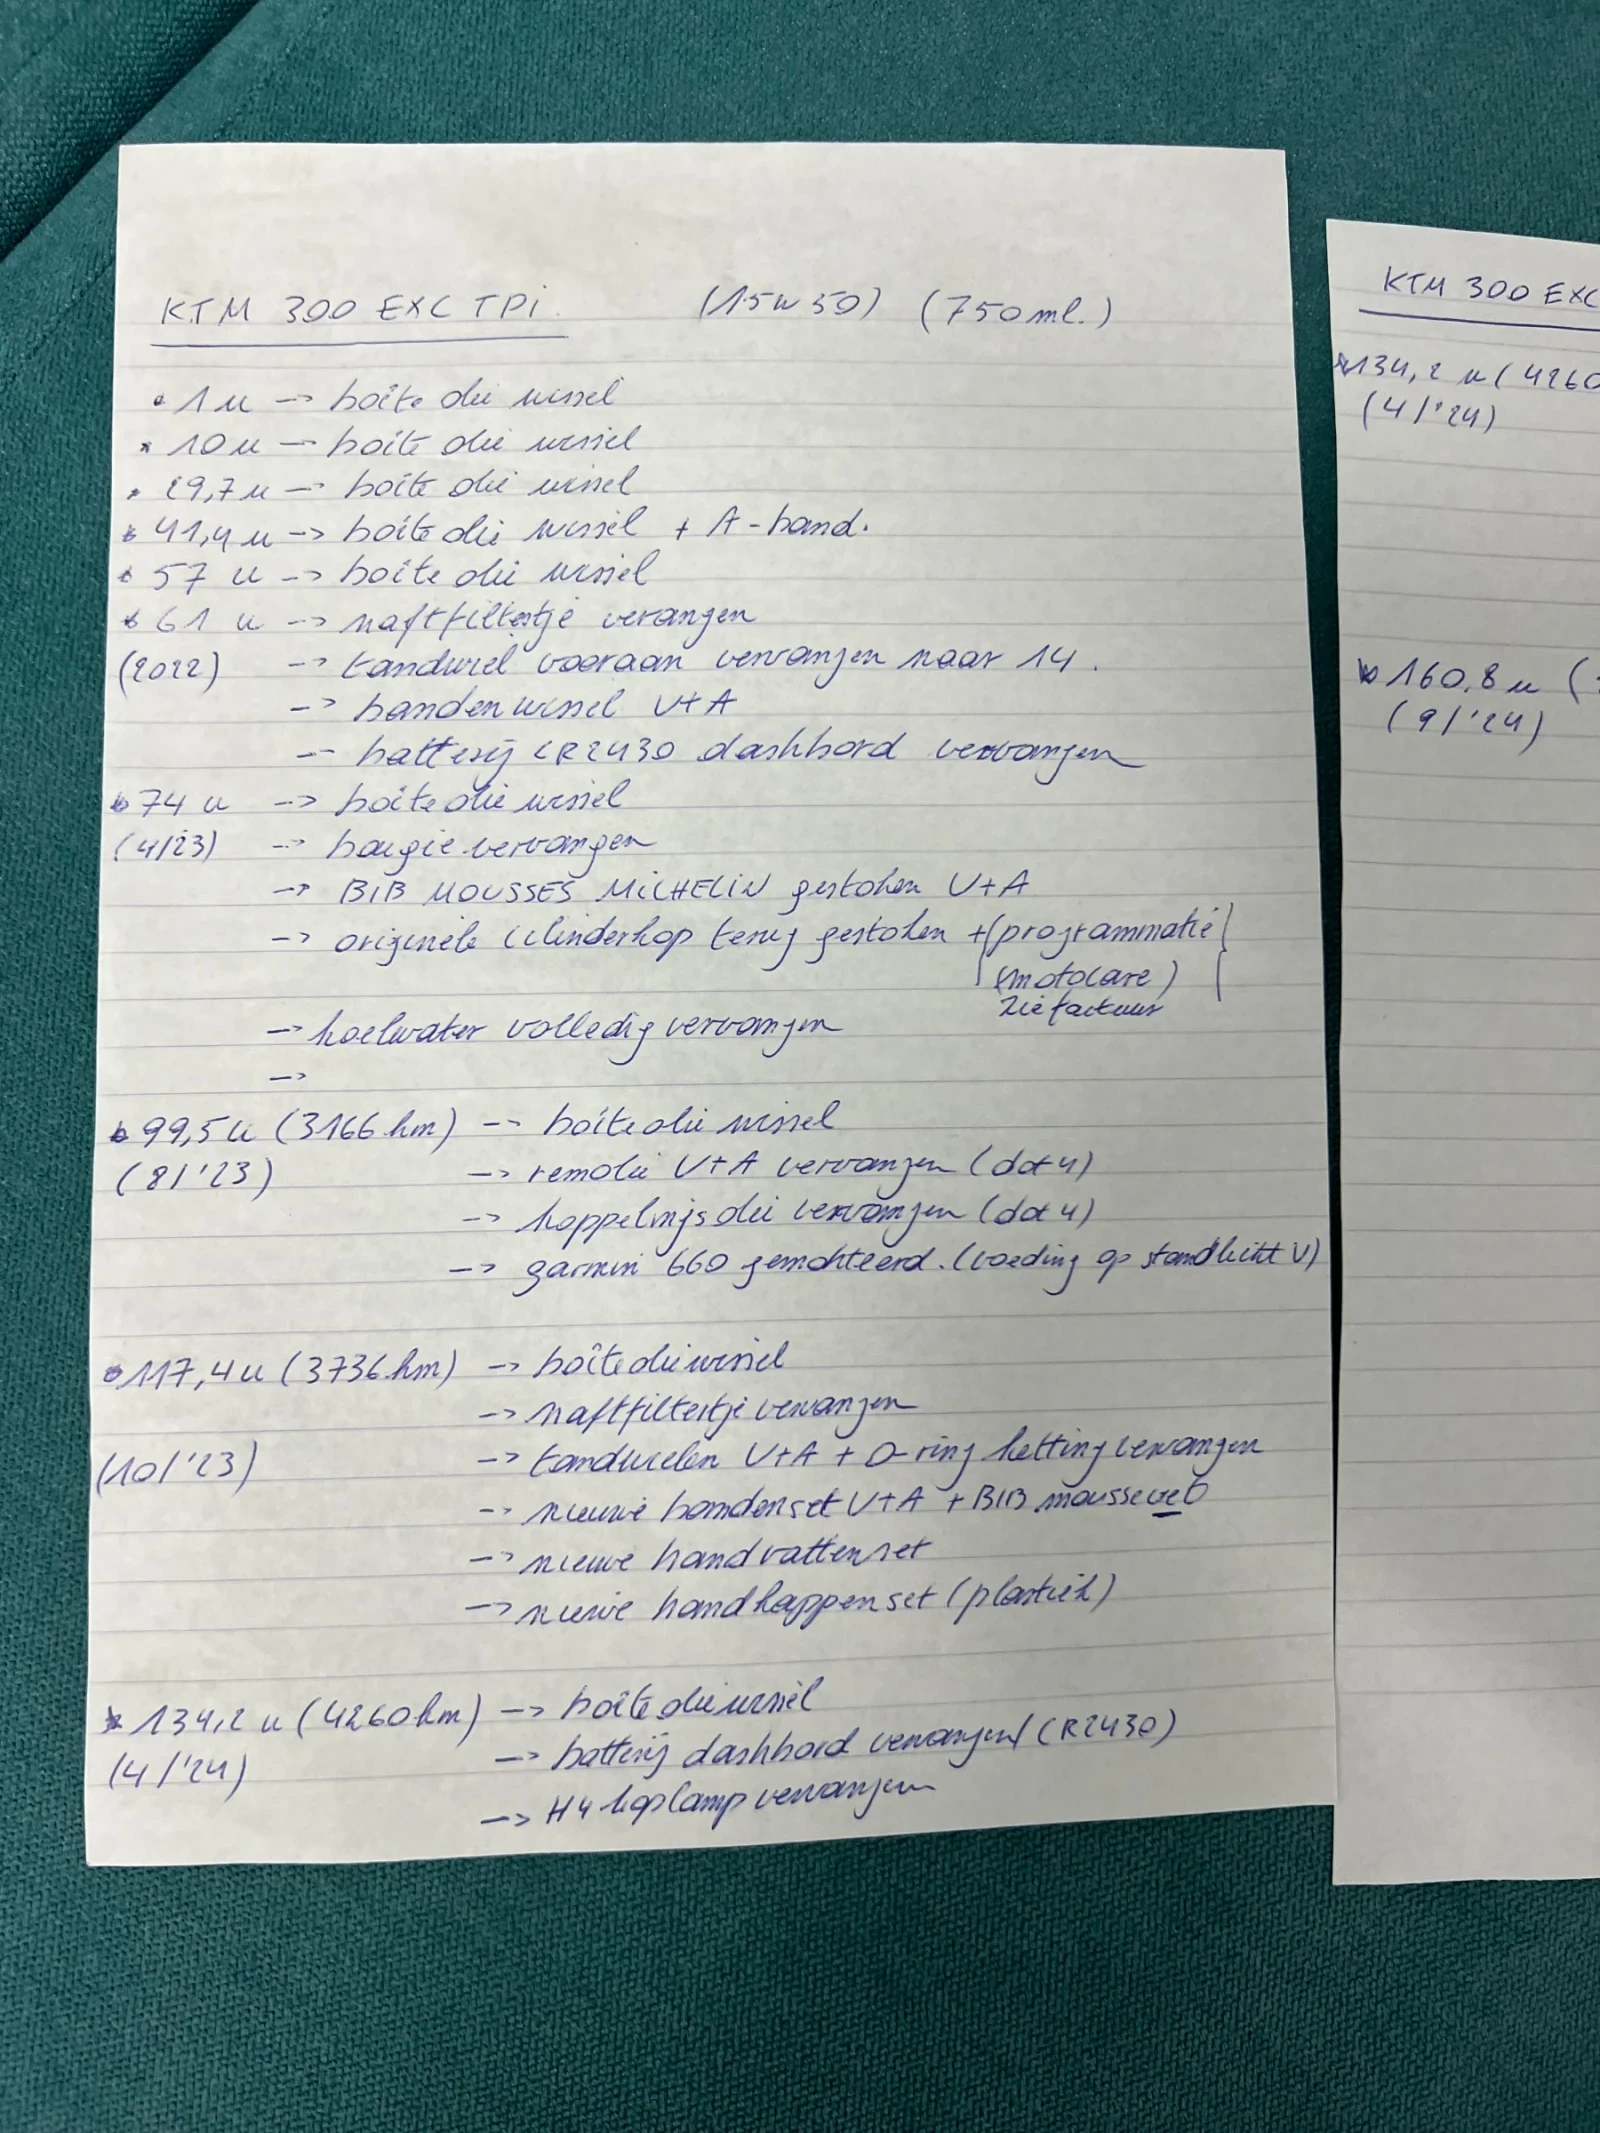 KTM 300 EXC TPi. (15w50) (750ml.)
• 1u -> boîte olie wissel
* 10u -> boîte olie wissel
* 29,7u -> boîte olie wissel
* 41,4u -> boîte olie wissel + A-band.
* 57 u -> boîte olie wissel
* 61 u -> naftfiltertje verangen
(2022) -> tandwiel vooraan vervangen naar 14.
-> bandenwissel V+A
-> batterij CR2430 dashbord vervangen
* 74 u -> boîte olie wissel
(4/23) -> bougie vervangen
-> BIB MOUSSES MICHELIN gestoken V+A
-> originele cilinderkop terug gestoken + (programmatie)
(motocare)
zie factuur
-> koelwater volledig vervangen
->
* 99,5u (3166 km) -> boîte olie wissel
(8/'23) -> remolie V+A vervangen (dot 4)
-> koppelingsolie vervangen (dot 4)
-> garmin 660 gemonteerd. (voeding op standlicht V)
* 117,4u (3736 km) -> boîte olie wissel
-> naftfiltertje vervangen
(10/'23) -> tandwielen V+A + O-ring ketting vervangen
-> nieuwe bandenset V+A + BIB moussevet
-> nieuwe handvatten set
-> nieuwe handkappen set (plastiek)
* 134,2 u (4260 km) -> boîte olie wissel
(4/'24) -> batterij dashbord vervangen (CR2430)
-> H4 koplamp vervangen
KTM 300 EXC
* 134,2 u (4260
(4/'24)
* 160,8 u (
(9/'24)